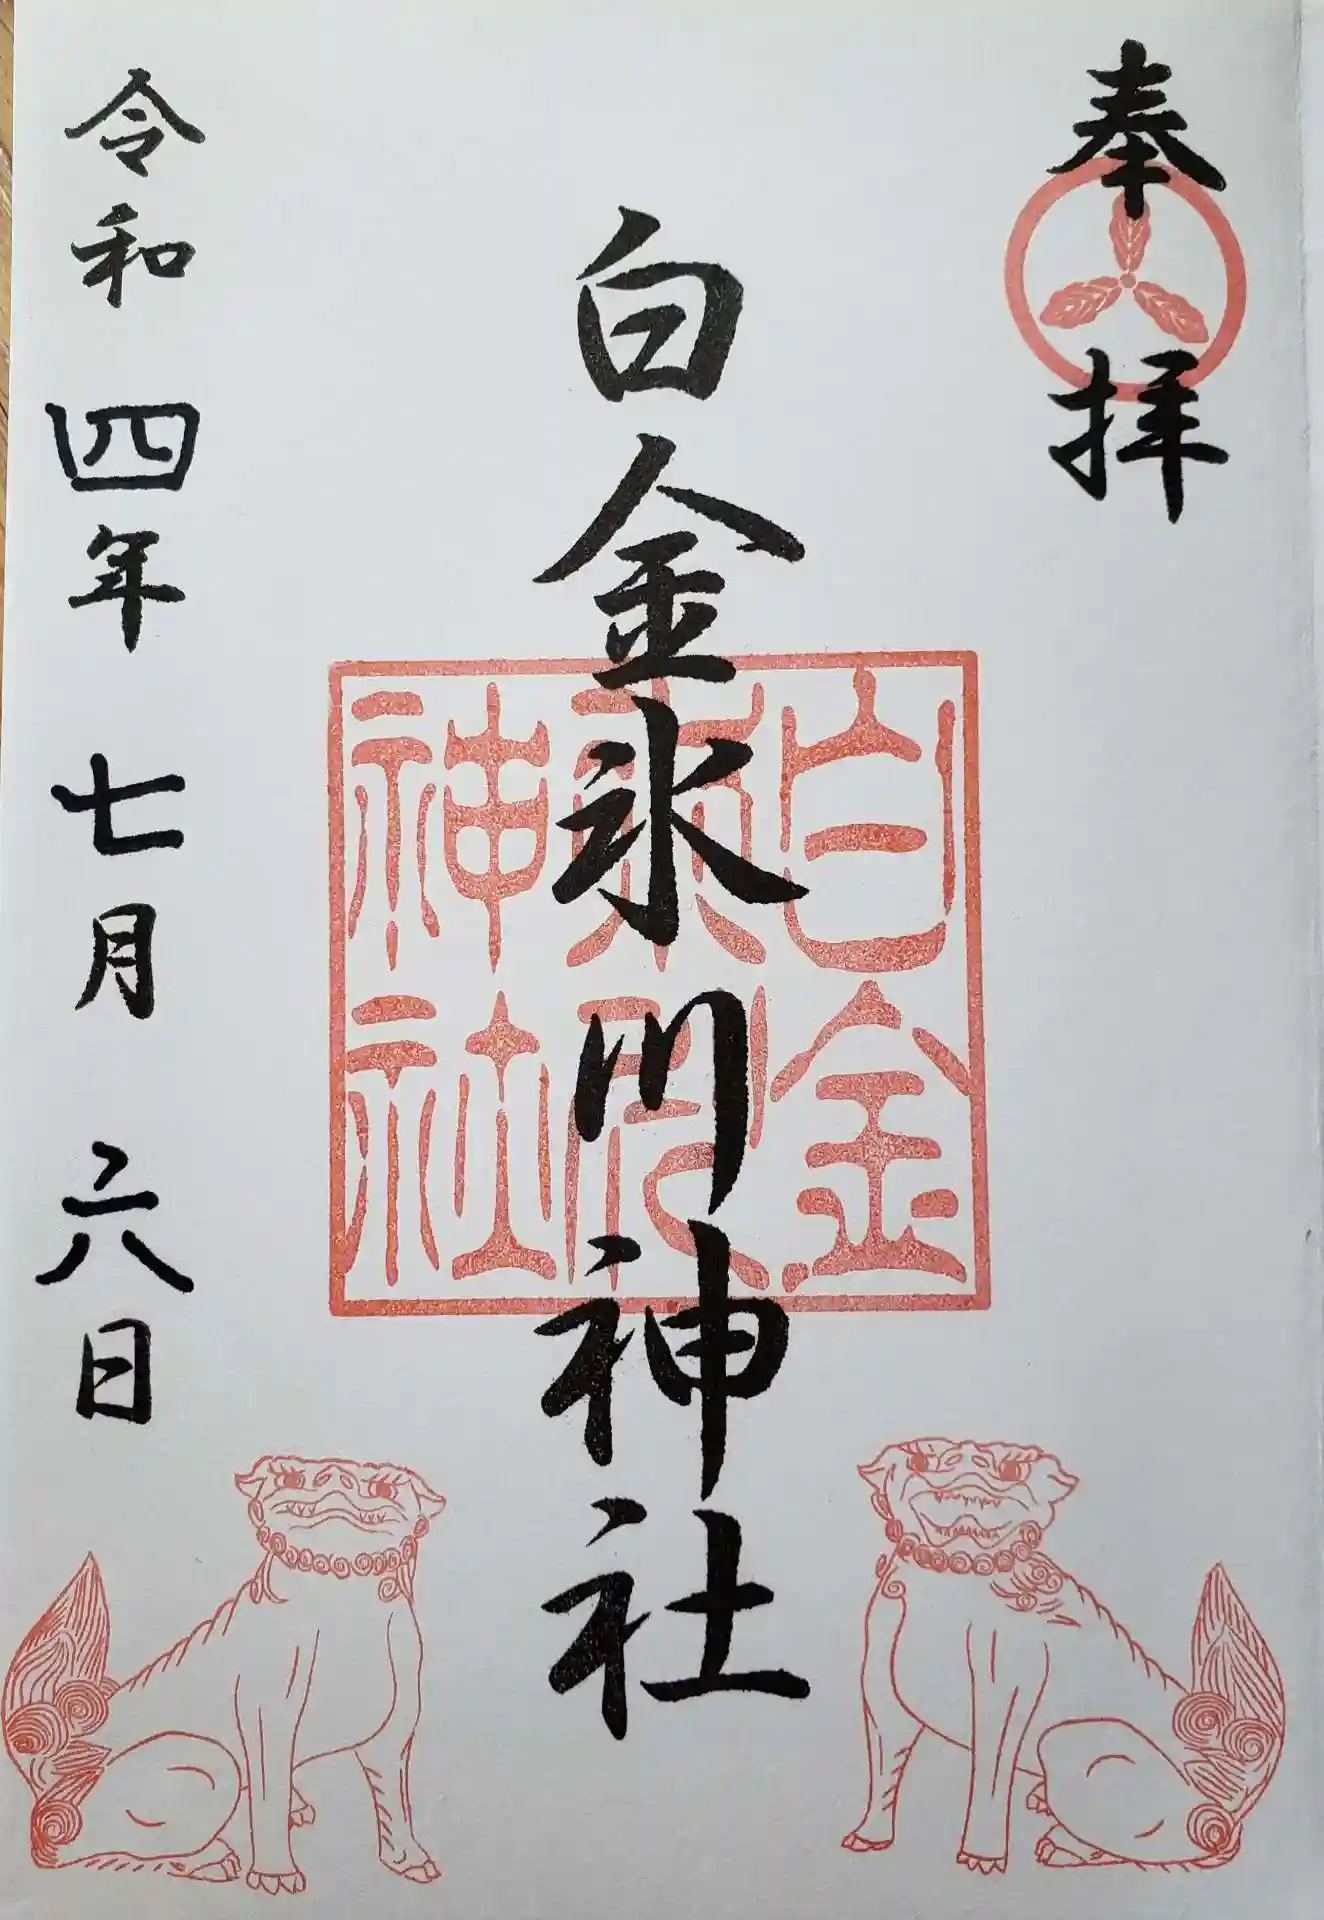 奉拝
白金氷川神社
白金氷川神社
令和四年七月六日